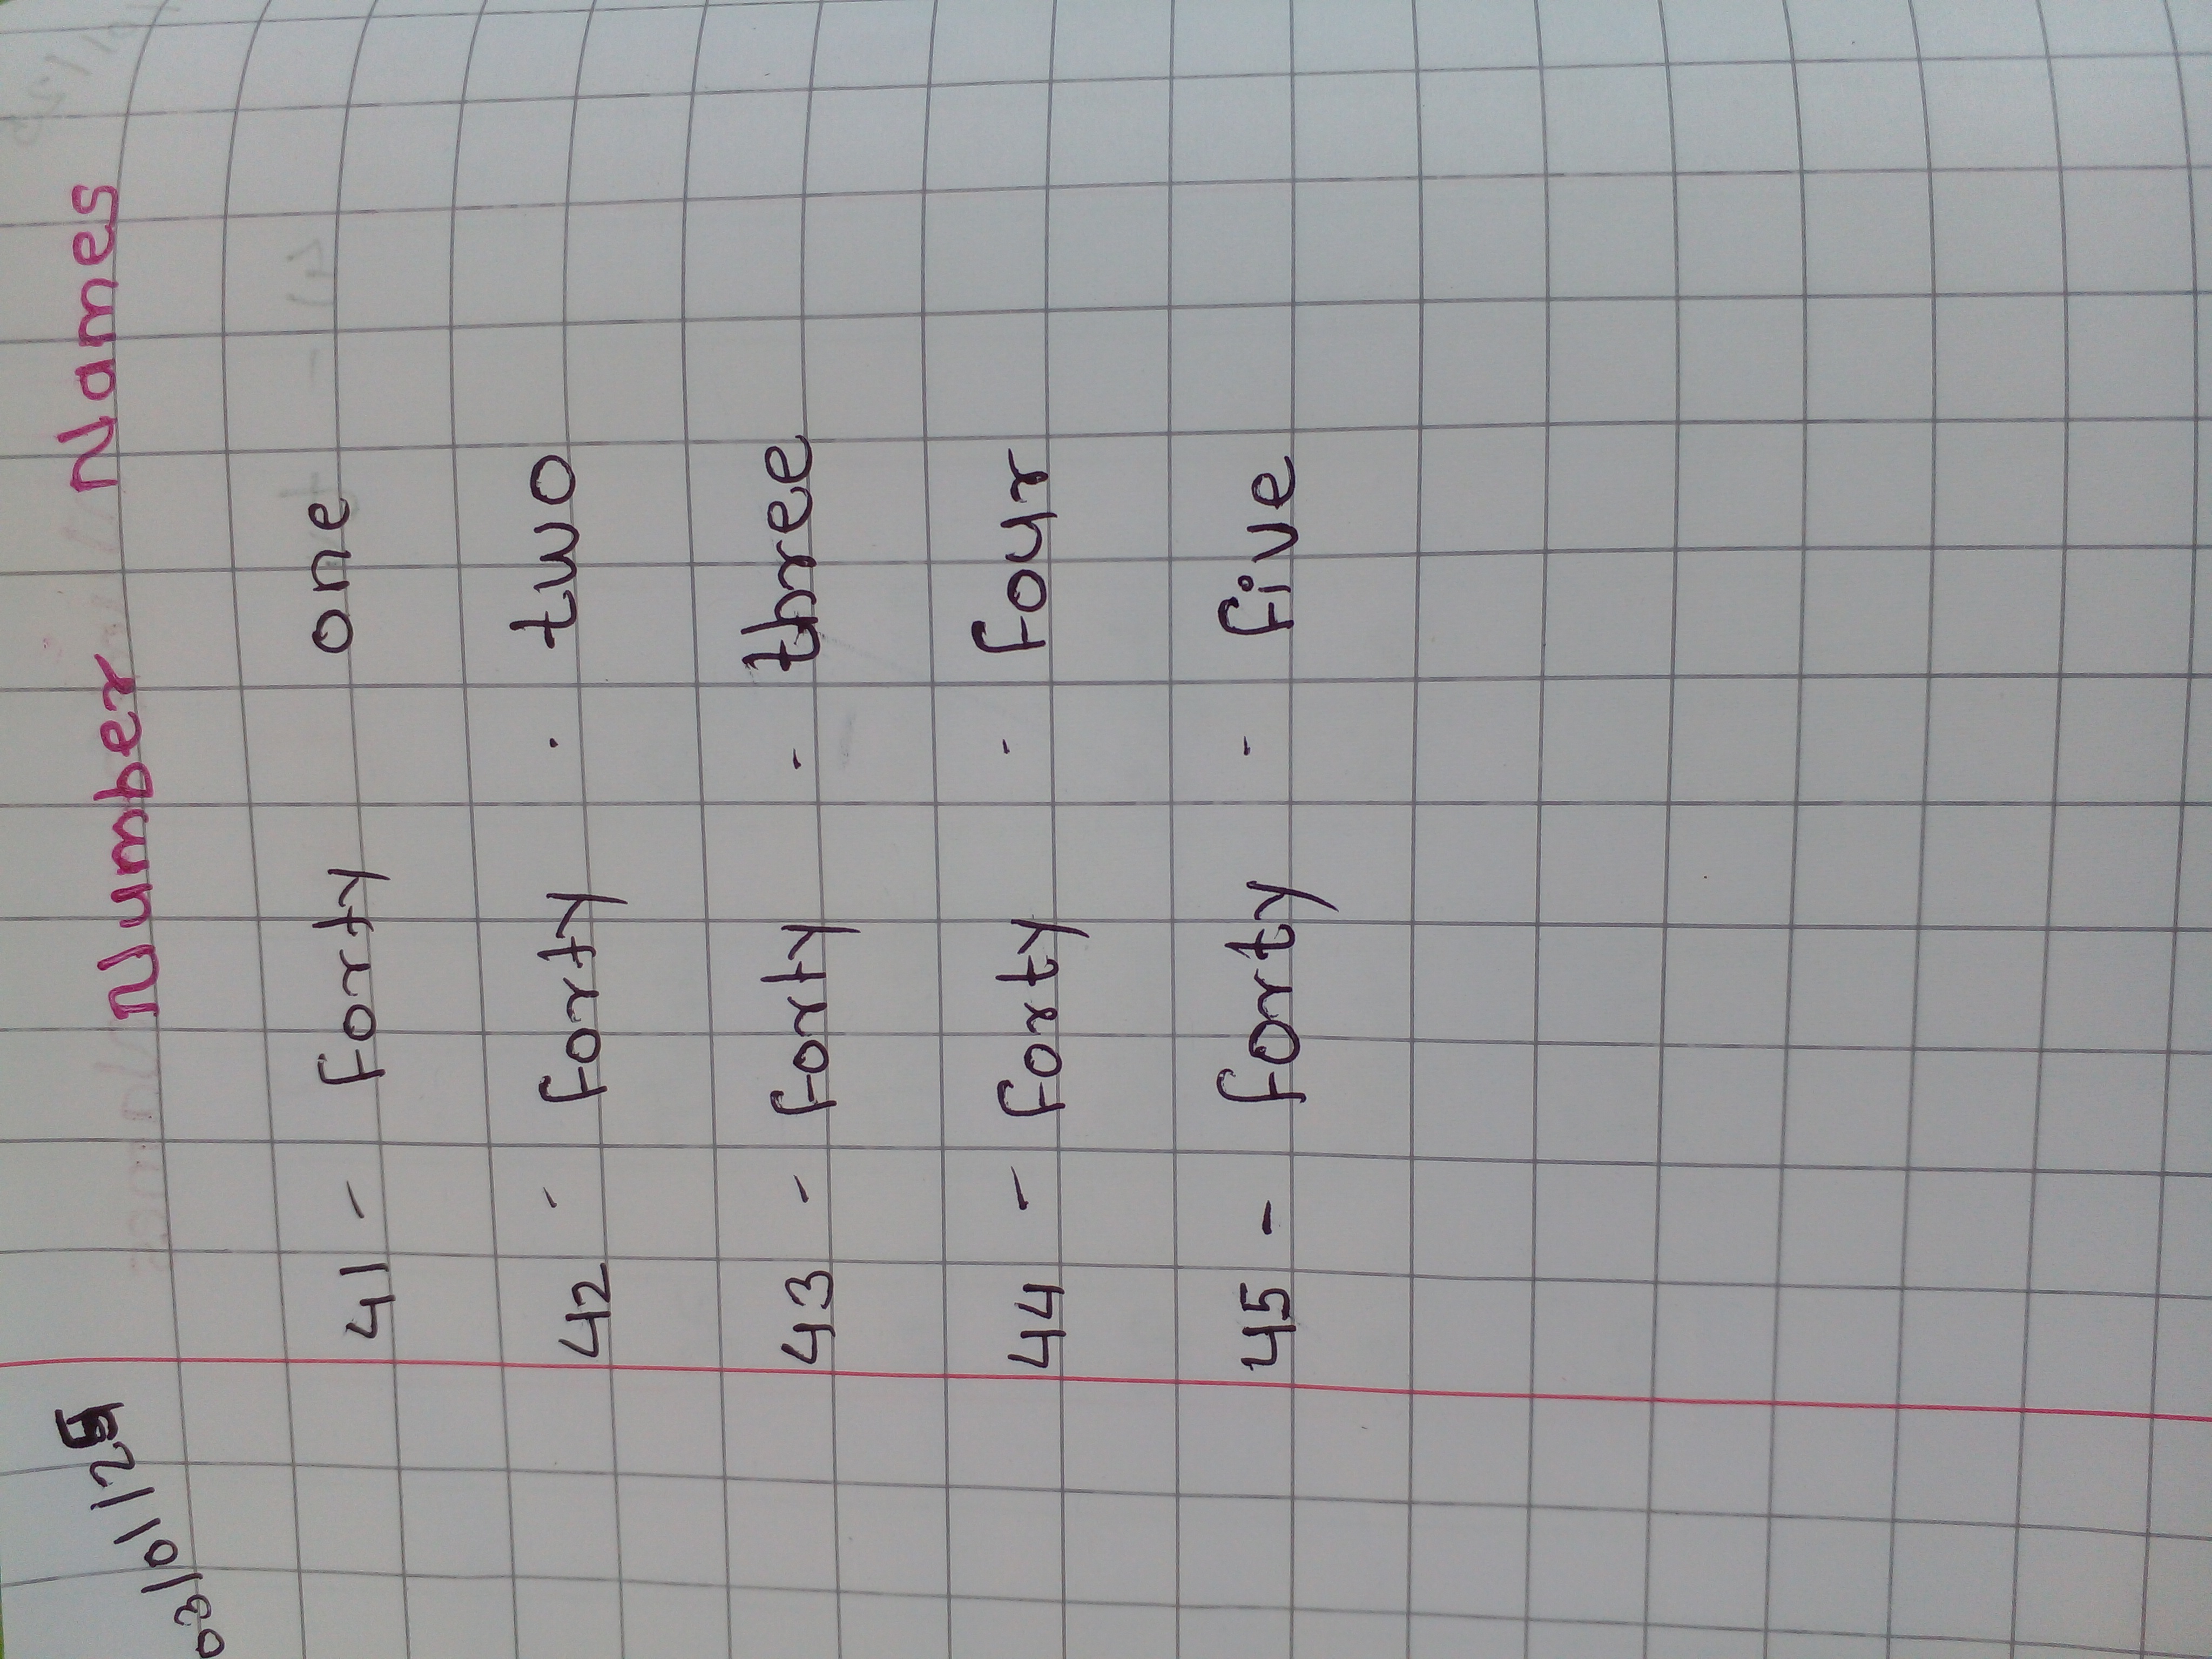 03/01/25
Number Names
41 - Forty one
42 - Forty - two
43 - Forty - three
44 - Forty - Four
45 - Forty - Five